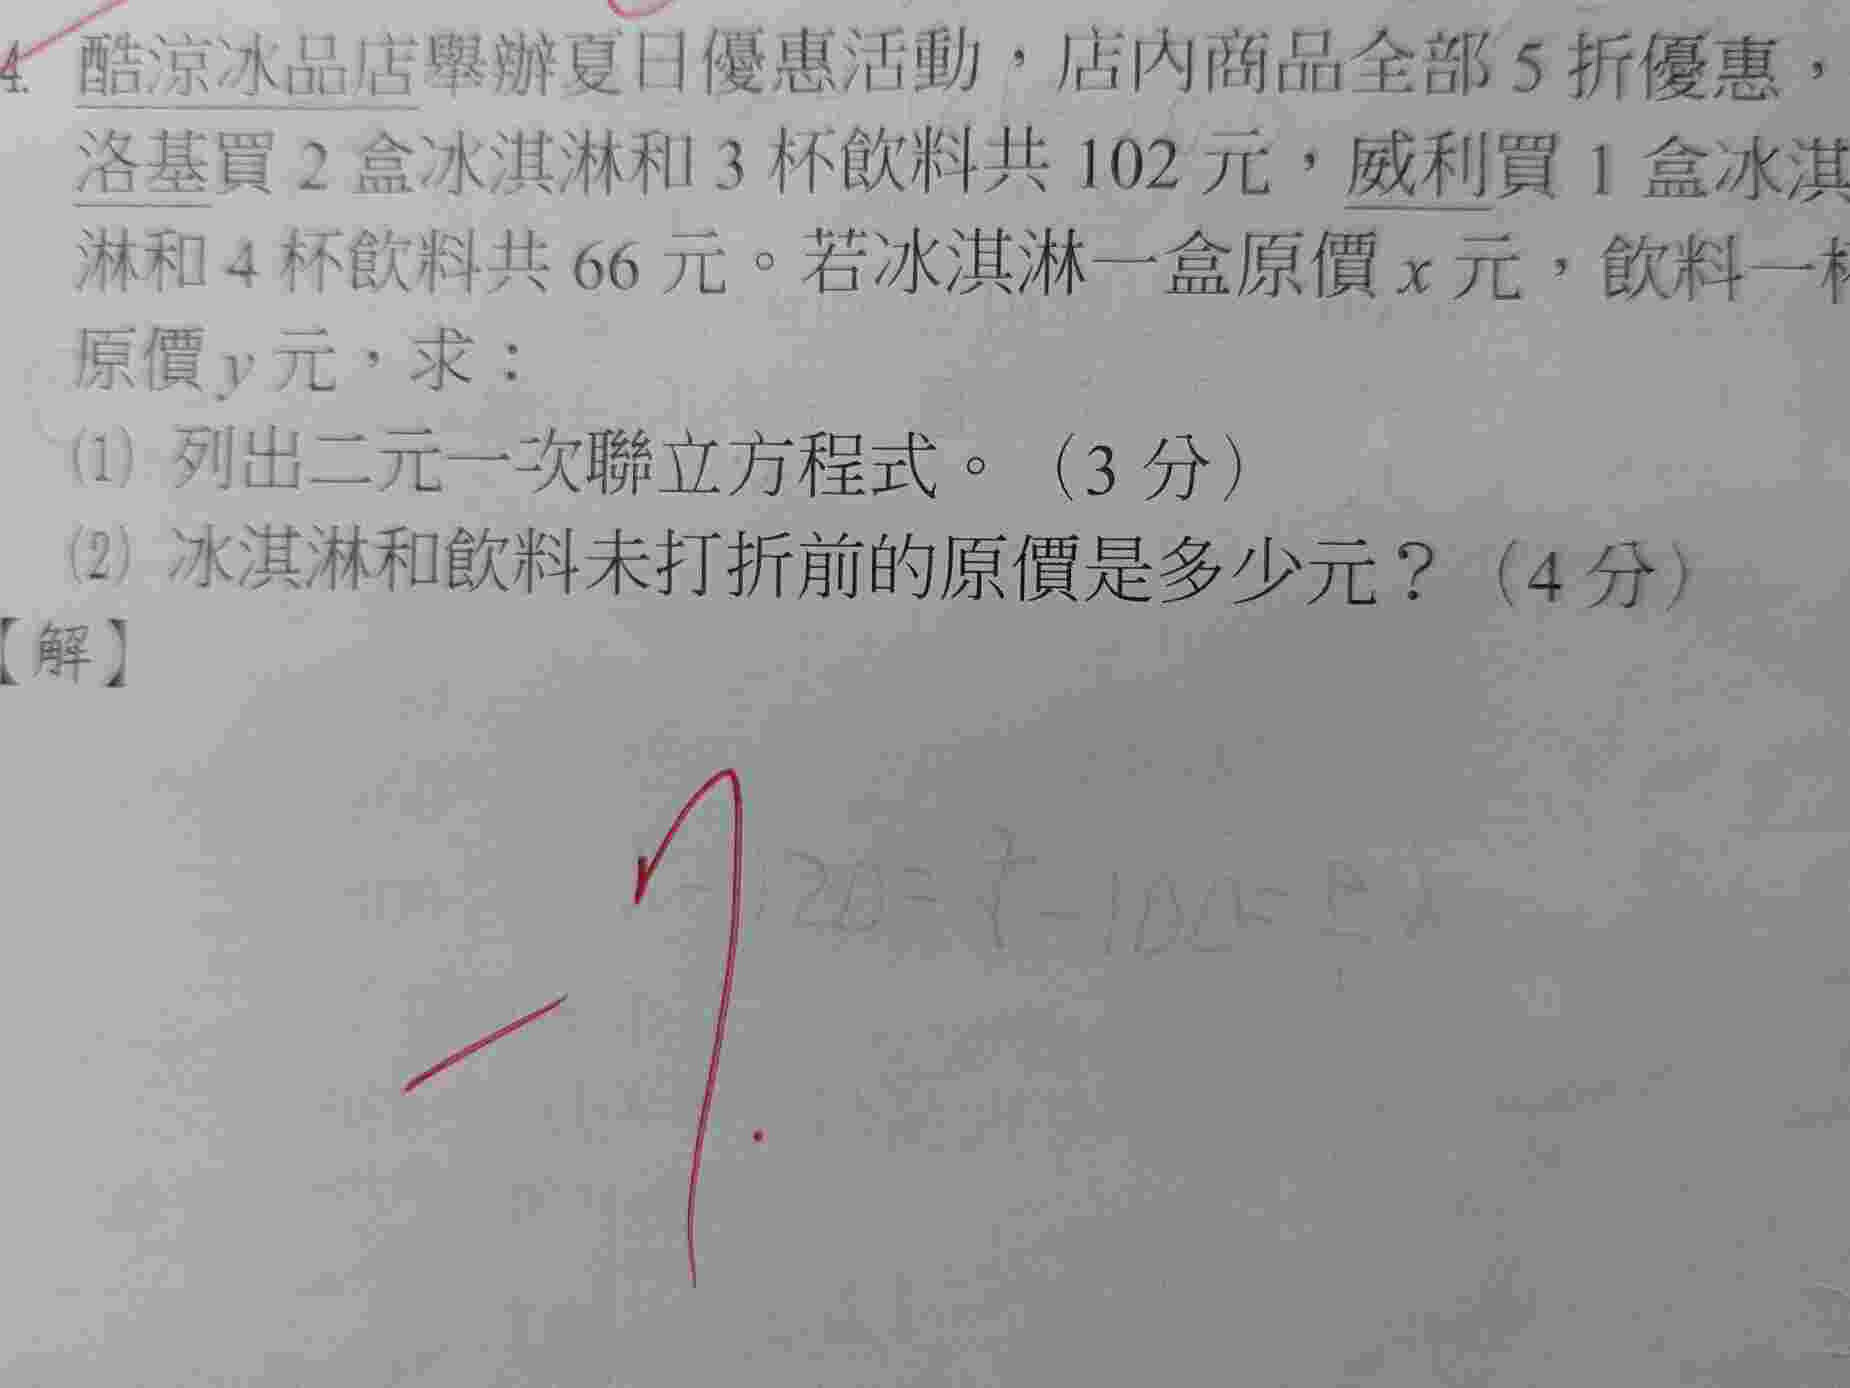 4. 酷涼冰品店舉辦夏日優惠活動，店內商品全部 5 折優惠，
洛基買 2 盒冰淇淋和 3 杯飲料共 102 元，威利買 1 盒冰淇
淋和 4 杯飲料共 66 元。若冰淇淋一盒原價 x 元，飲料一杯
原價 y 元，求：
(1) 列出二元一次聯立方程式。（3 分）
(2) 冰淇淋和飲料未打折前的原價是多少元？（4 分）
【解】
-7.